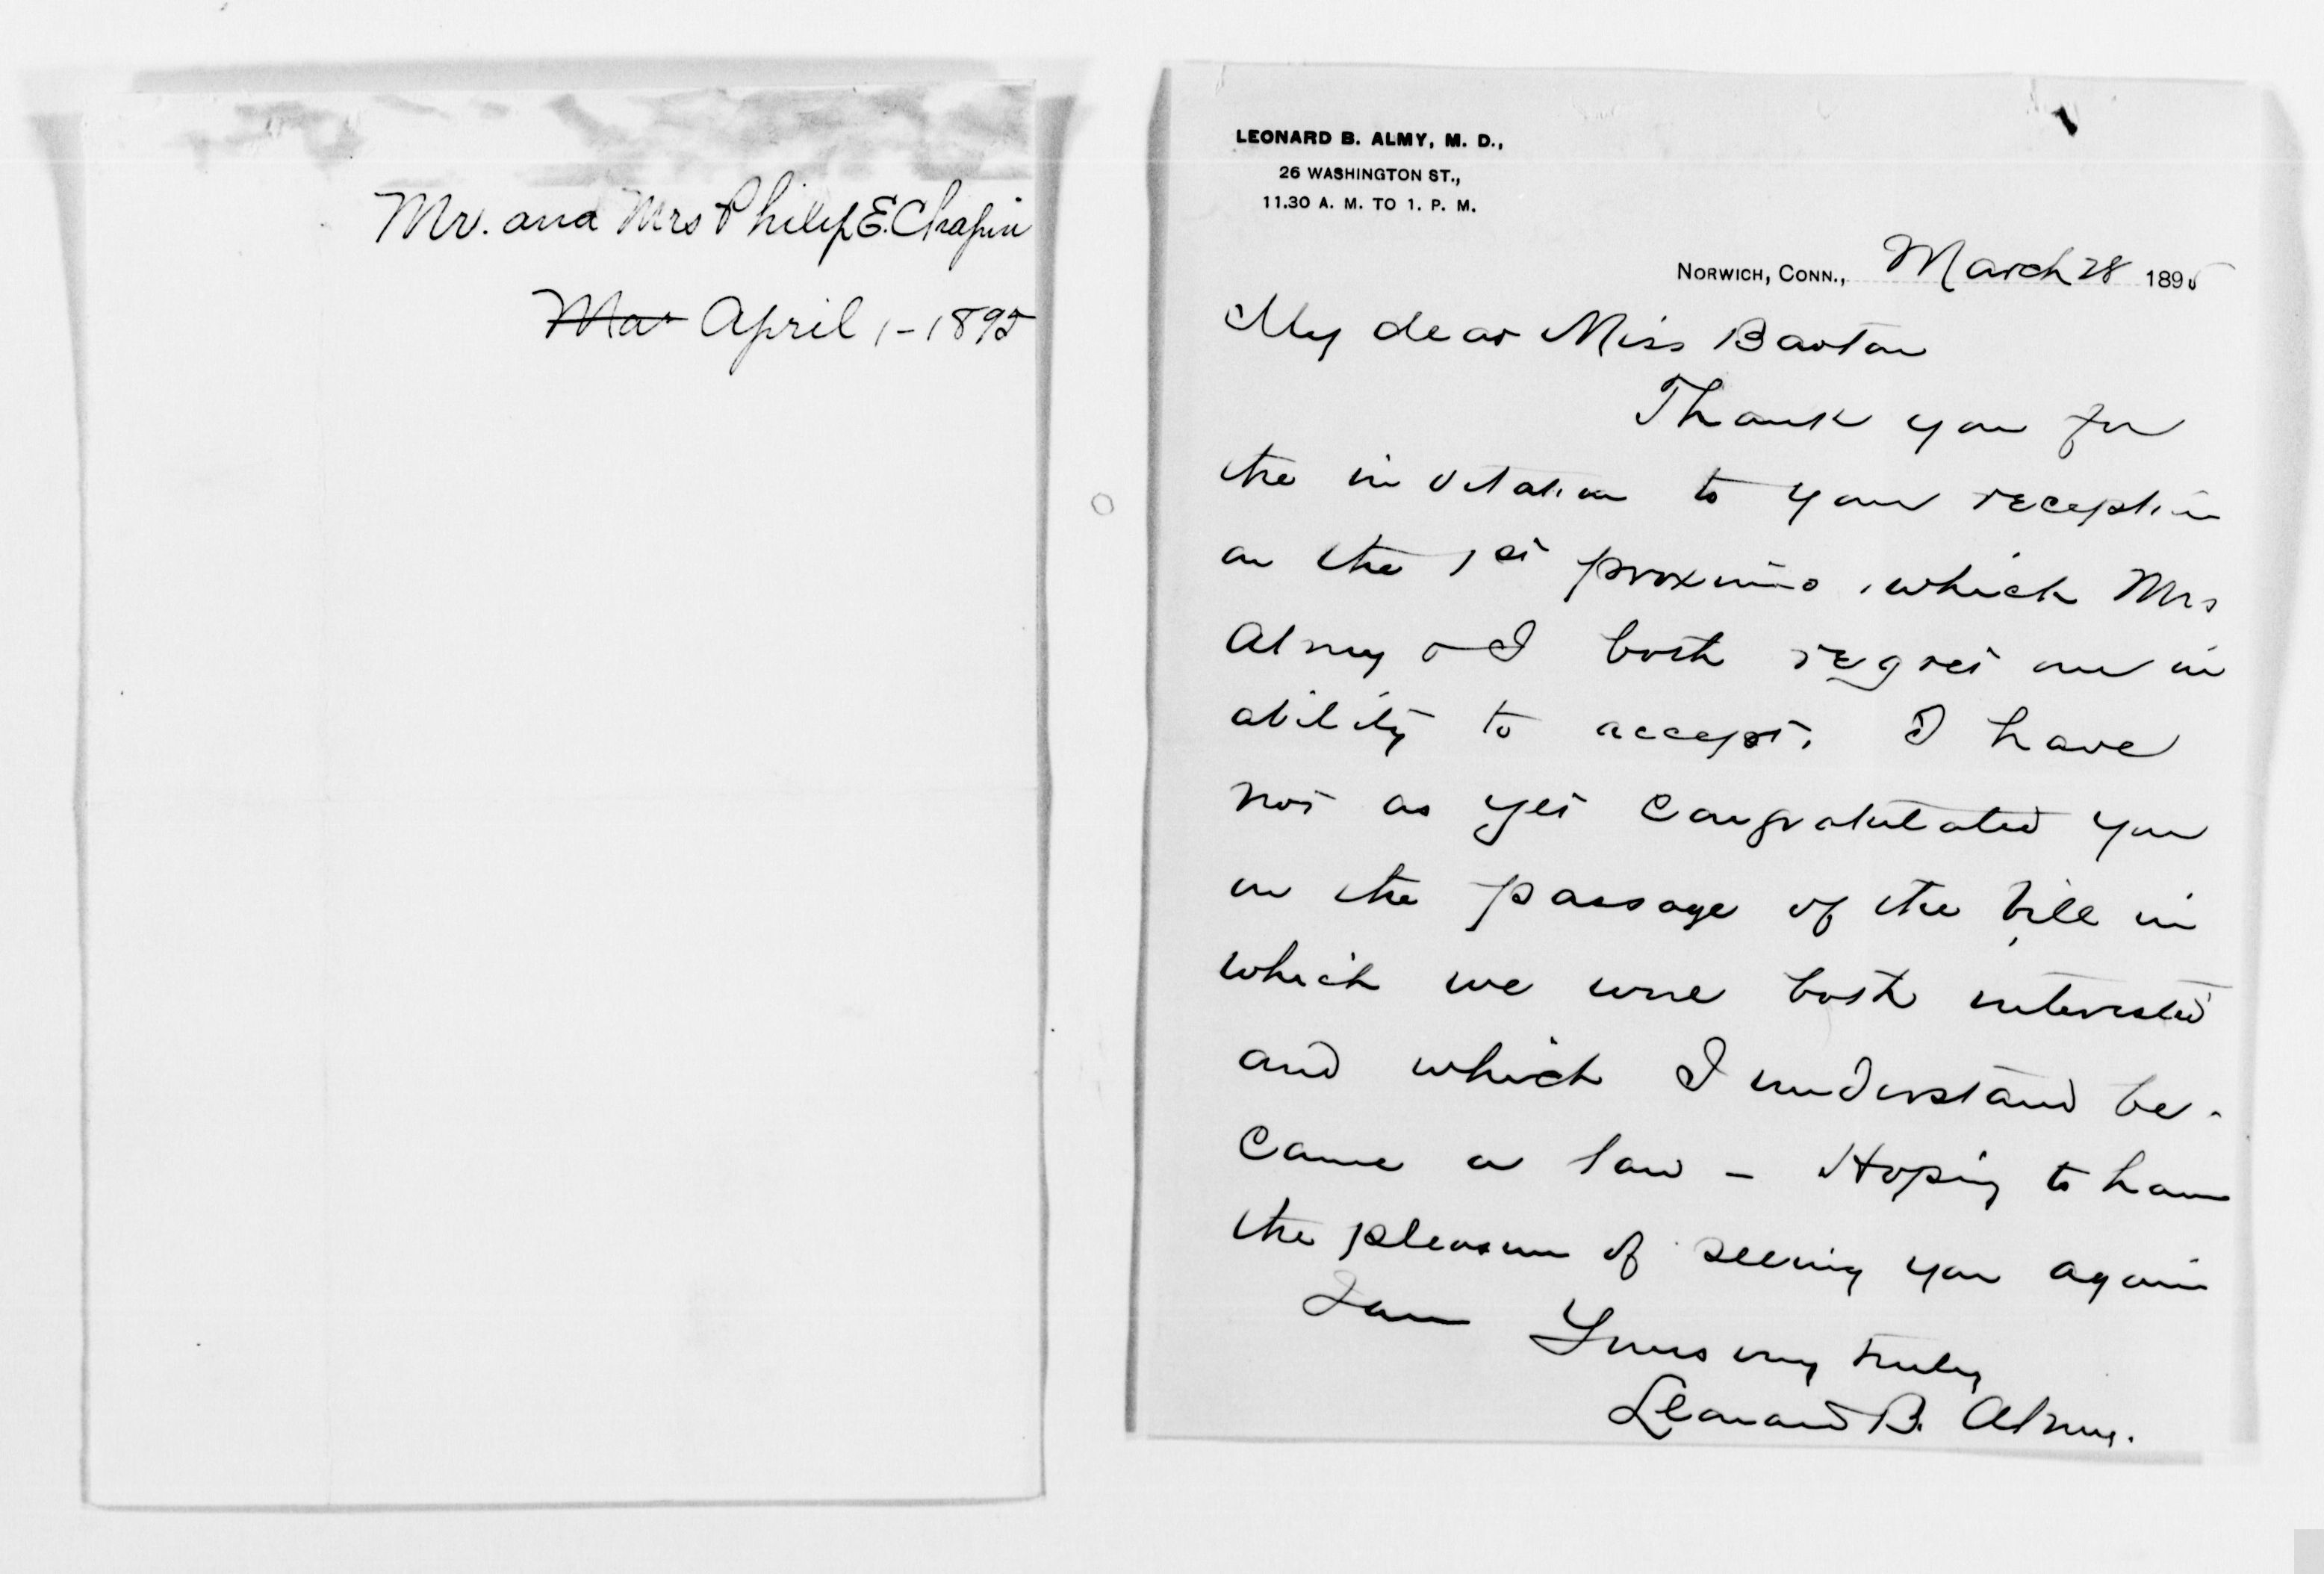 Mr. and Mrs Philip E. Chapin
Mar April 1 - 1895
LEONARD B. ALMY, M. D.,
26 WASHINGTON ST.,
11.30 A. M. TO 1. P. M.
NORWICH, CONN., March 28 1895
My dear Miss Barton
Thank you for
the invitation to your reception
on the 1st proximo, which Mrs
Almy & I both regret our in
ability to accept. I have
not as yet congratulated you
on the passage of the bill in
which we were both interested
and which I understand be-
came a law - Hoping to have
the pleasure of seeing you again
I am Yours very truly
Leonard B. Almy.